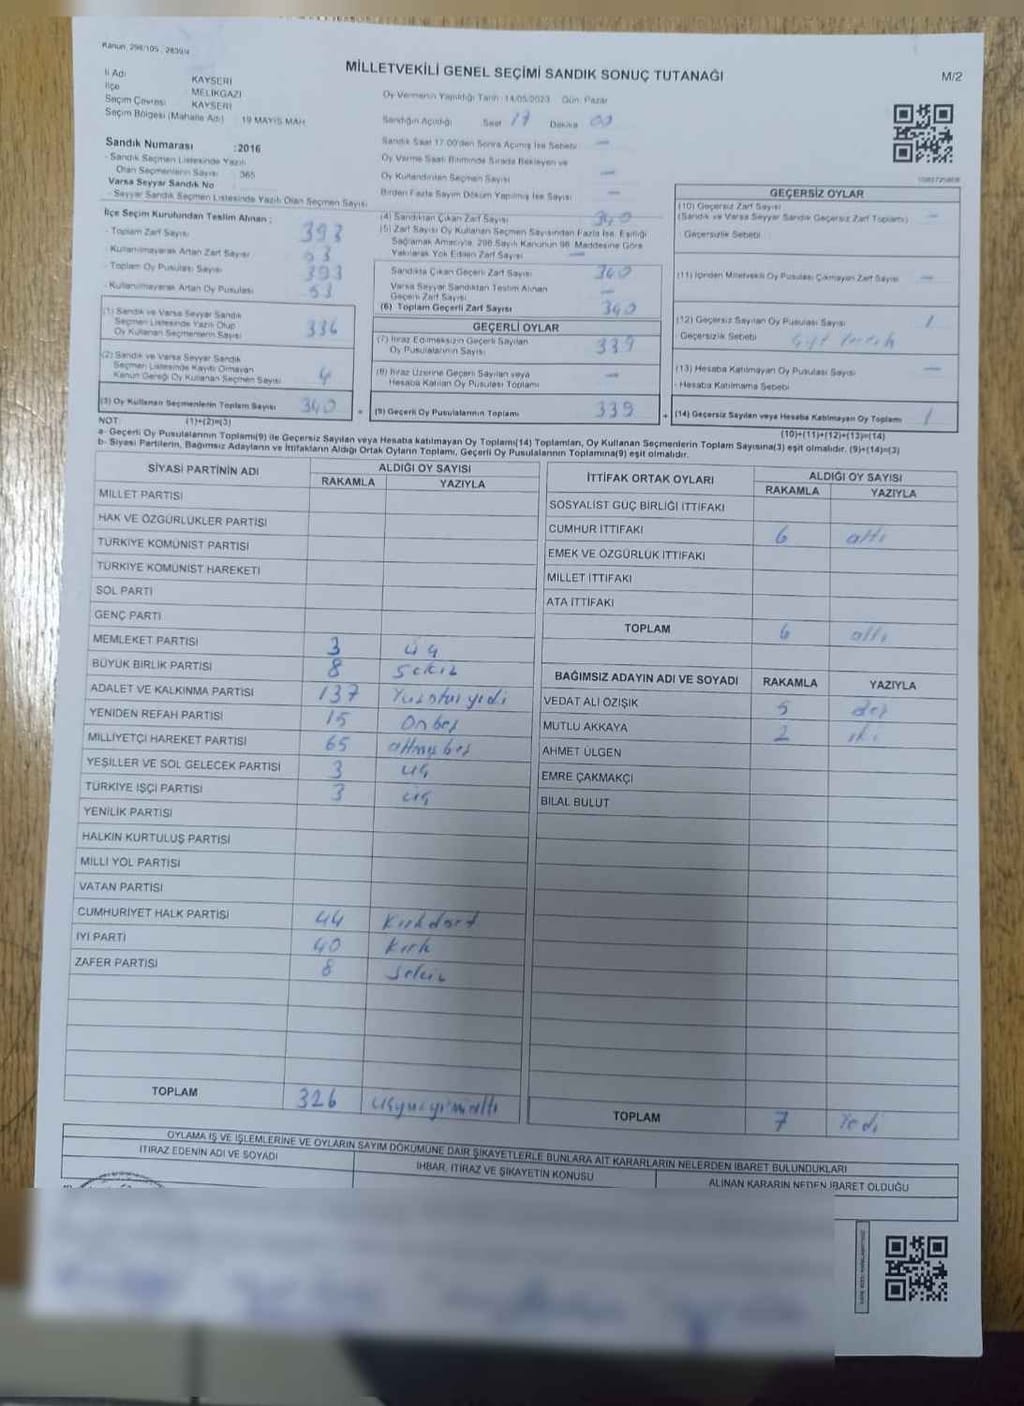 Kanun, 298/105, 2839/4
MİLLETVEKİLİ GENEL SEÇİMİ SANDIK SONUÇ TUTANAĞI
M/2
İl Adı KAYSERİ
İlçe MELİKGAZİ
Seçim Çevresi KAYSERİ
Seçim Bölgesi (Mahalle Adı) 19 MAYIS MAH.
Oy Vermenin Yapıldığı Tarih :14/05/2023 Gün: Pazar
Sandığın Açıldığı Saat 17 Dakika 00
Sandık Numarası :2016
- Sandık Seçmen Listesinde Yazılı
Olan Seçmenlerin Sayısı : 365
Varsa Seyyar Sandık No
- Seyyar Sandık Seçmen Listesinde Yazılı Olan Seçmen Sayısı
Sandık Saat 17:00'den Sonra Açılmış İse Sebebi —
Oy Verme Saati Bitiminde Sırada Bekleyen ve
Oy Kullandırılan Seçmen Sayısı —
Birden Fazla Sayım Döküm Yapılmış İse Sayısı —
İlçe Seçim Kurulundan Teslim Alınan :
- Toplam Zarf Sayısı 393
- Kullanılmayarak Artan Zarf Sayısı 53
- Toplam Oy Pusulası Sayısı 393
- Kullanılmayarak Artan Oy Pusulası 53
(1) Sandık ve Varsa Seyyar Sandık
Seçmen Listesinde Yazılı Olup
Oy Kullanan Seçmenlerin Sayısı 336
(2) Sandık ve Varsa Seyyar Sandık
Seçmen Listesinde Kayıtlı Olmayan
Kanun Gereği Oy Kullanan Seçmen Sayısı 4
(3) Oy Kullanan Seçmenlerin Toplam Sayısı 340
(4) Sandıktan Çıkan Zarf Sayısı 340
(5) Zarf Sayısı Oy Kullanan Seçmen Sayısından Fazla İse, Eşitliği
Sağlamak Amacıyla, 298 Sayılı Kanunun 98. Maddesine Göre
Yakılarak Yok Edilen Zarf Sayısı —
Sandıkta Çıkan Geçerli Zarf Sayısı 340
Varsa Seyyar Sandıktan Teslim Alınan
Geçerli Zarf Sayısı —
(6) Toplam Geçerli Zarf Sayısı 340
GEÇERLİ OYLAR
(7) İtiraz Edilmeksizin Geçerli Sayılan
Oy Pusulalarının Sayısı 339
(8) İtiraz Üzerine Geçerli Sayılan veya
Hesaba Katılan Oy Pusulası Toplamı —
= (9) Geçerli Oy Pusulalarının Toplamı 339
GEÇERSİZ OYLAR
(10) Geçersiz Zarf Sayısı
(Sandık ve Varsa Seyyar Sandık Geçersiz Zarf Toplamı) —
- Geçersizlik Sebebi
(11) İçinden Milletvekili Oy Pusulası Çıkmayan Zarf Sayısı —
(12) Geçersiz Sayılan Oy Pusulası Sayısı 1
- Geçersizlik Sebebi Çift Tercih
(13) Hesaba Katılmayan Oy Pusulası Sayısı —
- Hesaba Katılmama Sebebi
+ (14) Geçersiz Sayılan veya Hesaba Katılmayan Oy Toplamı 1
NOT: (1)+(2)=(3)
(10)+(11)+(12)+(13)=(14)
a- Geçerli Oy Pusulalarının Toplamı(9) ile Geçersiz Sayılan veya Hesaba katılmayan Oy Toplamı(14) Toplamları, Oy Kullanan Seçmenlerin Toplam Sayısına(3) eşit olmalıdır. (9)+(14)=(3)
b- Siyasi Partilerin, Bağımsız Adayların ve İttifakların Aldığı Ortak Oyların Toplamı, Geçerli Oy Pusulalarının Toplamına(9) eşit olmalıdır.
SİYASİ PARTİNİN ADI ALDIĞI OY SAYISI
RAKAMLA YAZIYLA
MİLLET PARTİSİ
HAK VE ÖZGÜRLÜKLER PARTİSİ
TÜRKİYE KOMÜNİST PARTİSİ
TÜRKİYE KOMÜNİST HAREKETİ
SOL PARTİ
GENÇ PARTİ
MEMLEKET PARTİSİ 3 üç
BÜYÜK BİRLİK PARTİSİ 8 Sekiz
ADALET VE KALKINMA PARTİSİ 137 Yüzotuzyedi
YENİDEN REFAH PARTİSİ 15 Onbeş
MİLLİYETÇİ HAREKET PARTİSİ 65 altmışbeş
YEŞİLLER VE SOL GELECEK PARTİSİ 3 üç
TÜRKİYE İŞÇİ PARTİSİ 3 üç
YENİLİK PARTİSİ
HALKIN KURTULUŞ PARTİSİ
MİLLİ YOL PARTİSİ
VATAN PARTİSİ
CUMHURİYET HALK PARTİSİ 44 Kırkdört
İYİ PARTİ 40 Kırk
ZAFER PARTİSİ 8 Sekiz
TOPLAM 326 üçyüzyirmialtı
İTTİFAK ORTAK OYLARI ALDIĞI OY SAYISI
RAKAMLA YAZIYLA
SOSYALİST GÜÇ BİRLİĞİ İTTİFAKI
CUMHUR İTTİFAKI 6 altı
EMEK VE ÖZGÜRLÜK İTTİFAKI
MİLLET İTTİFAKI
ATA İTTİFAKI
TOPLAM 6 altı
BAĞIMSIZ ADAYIN ADI VE SOYADI RAKAMLA YAZIYLA
VEDAT ALİ ÖZIŞIK 5 beş
MUTLU AKKAYA 2 iki
AHMET ÜLGEN
EMRE ÇAKMAKÇI
BİLAL BULUT
TOPLAM 7 Yedi
OYLAMA İŞ VE İŞLEMLERİNE VE OYLARIN SAYIM DÖKÜMÜNE DAİR ŞİKAYETLERLE BUNLARA AİT KARARLARIN NELERDEN İBARET BULUNDUKLARI
İTİRAZ EDENİN ADI VE SOYADI
İHBAR, İTİRAZ VE ŞİKAYETİN KONUSU
ALINAN KARARIN NEDEN İBARET OLDUĞU